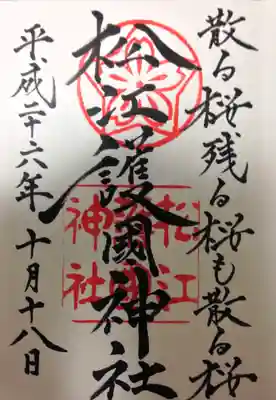 散る桜残る桜も散る桜
松江護國神社
平成二十六年 十月十八日
松江
護國
神社